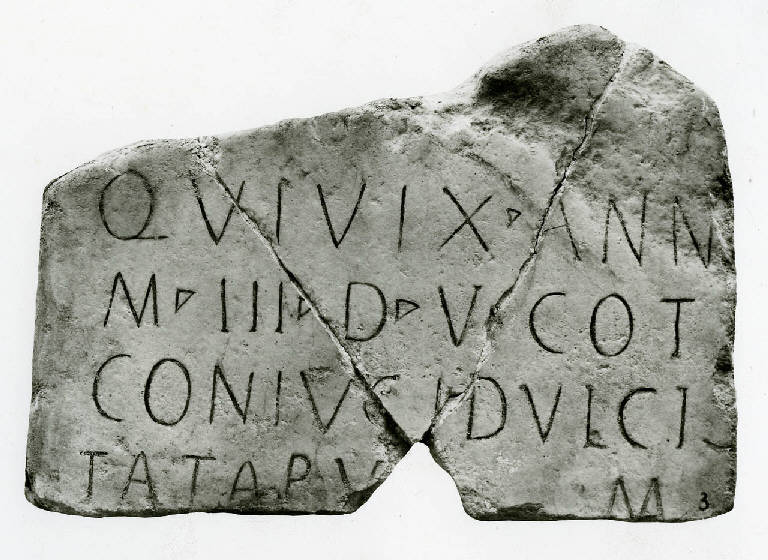 QVIVIX▹ANN
M▹III▹D▹V COT
CONIVGI DVLCI
TATA PV M
3